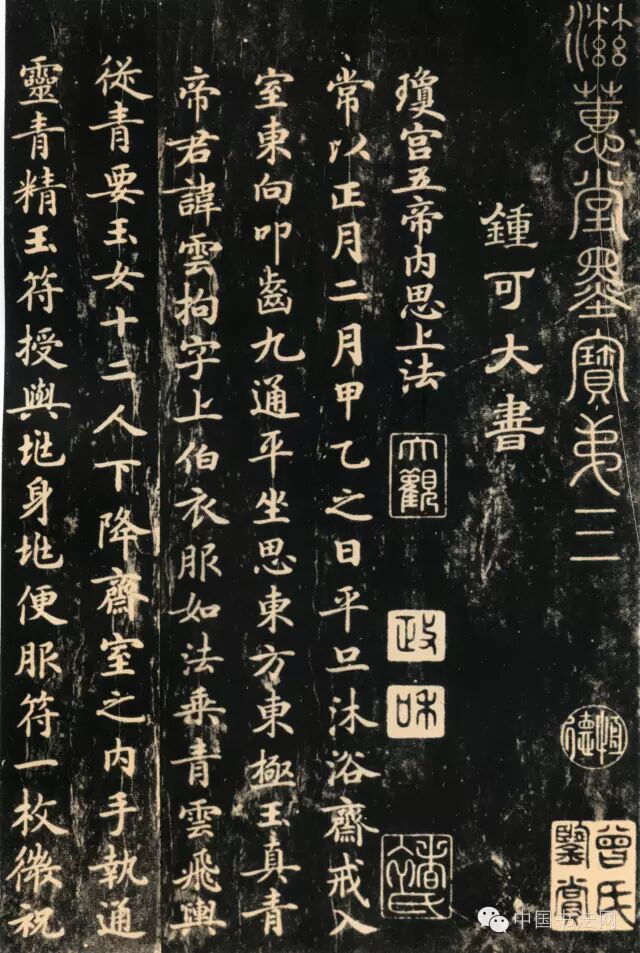 滋蕙堂墨寶弟三
恆德
曾氏鑒賞
鍾可大書
瓊宮五帝內思上法
大觀
政
和
常以正月二月甲乙之日平旦沐浴齋戒入
室東向叩齒九通平坐思東方東極玉真青
帝君諱雲拘字上伯衣服如法乘青雲飛輿
從青要玉女十二人下降齋室之內手執通
靈青精玉符授與兆身兆便服符一枚微祝
中国书法网